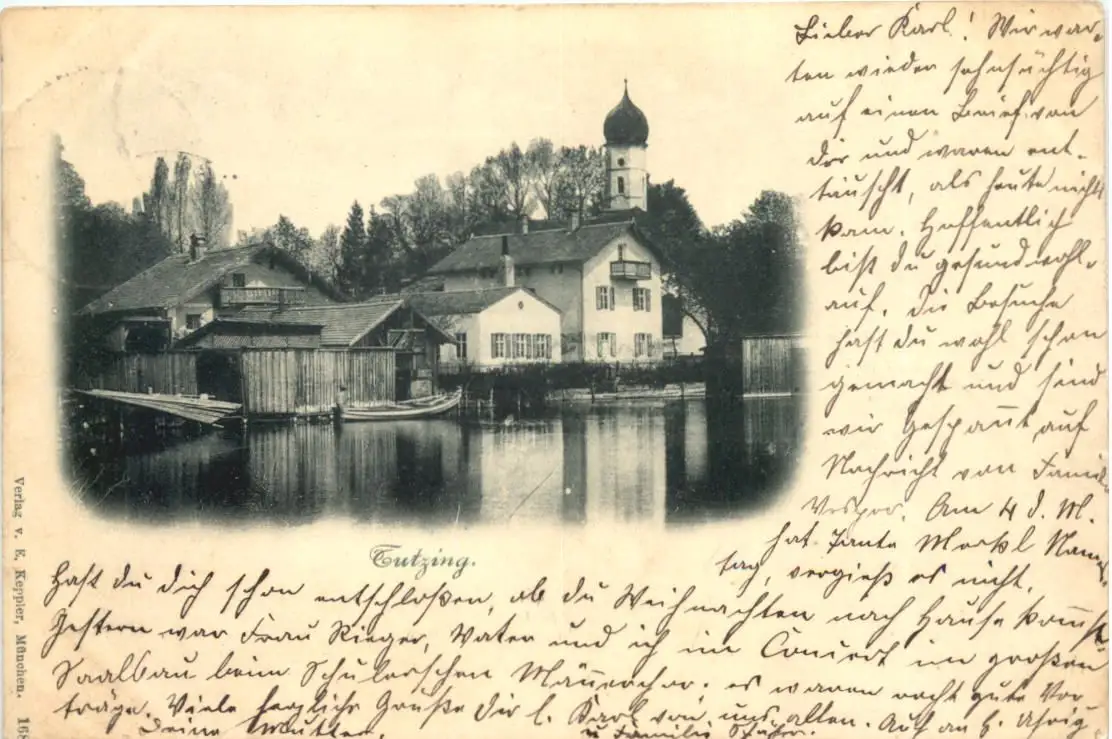 Lieber Karl! Wir war-
ten wieder sehnsüchtig
auf einen Brief von
dir und waren ent-
täuscht, als heute nicht
kam. Hoffentlich
bist du gesund wohl-
auf. Die Besuche
hast du wohl schon
gemacht und sind
wir gespannt auf
Nachricht von Famil
Vesper. Am 4 d. M.
hat Tante Merkl Namens
tag, vergieß es nicht.
Tutzing.
Hast du dich schon entschloßen, ob du Weihnachten nach Hause komst
Gestern war Frau Rieger, Vater und ich im Concert im großen
Saalbau beim Schülerschen Männerchor, es waren recht gute Vor
träge. Viele herzliche Grüße dir l. Karl von uns allen. Auch an
Deine Mutter.
u Familie
Verlag v. E. Keppler, München. 168